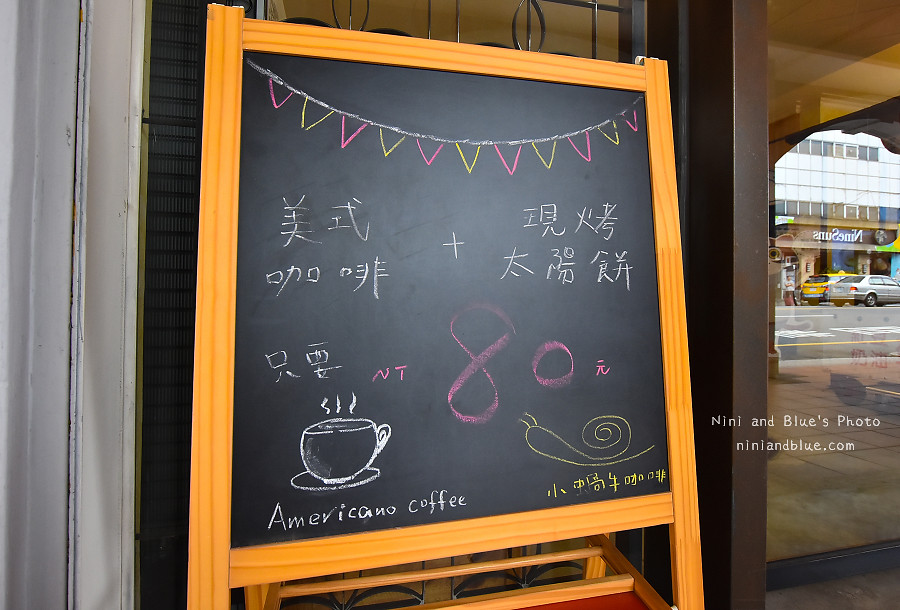 美式
咖啡
+
現烤
太陽餅
只要 NT 80 元
Americano coffee
小蝸牛咖啡
NineSuns
Nini and Blue's Photo
niniandblue.com